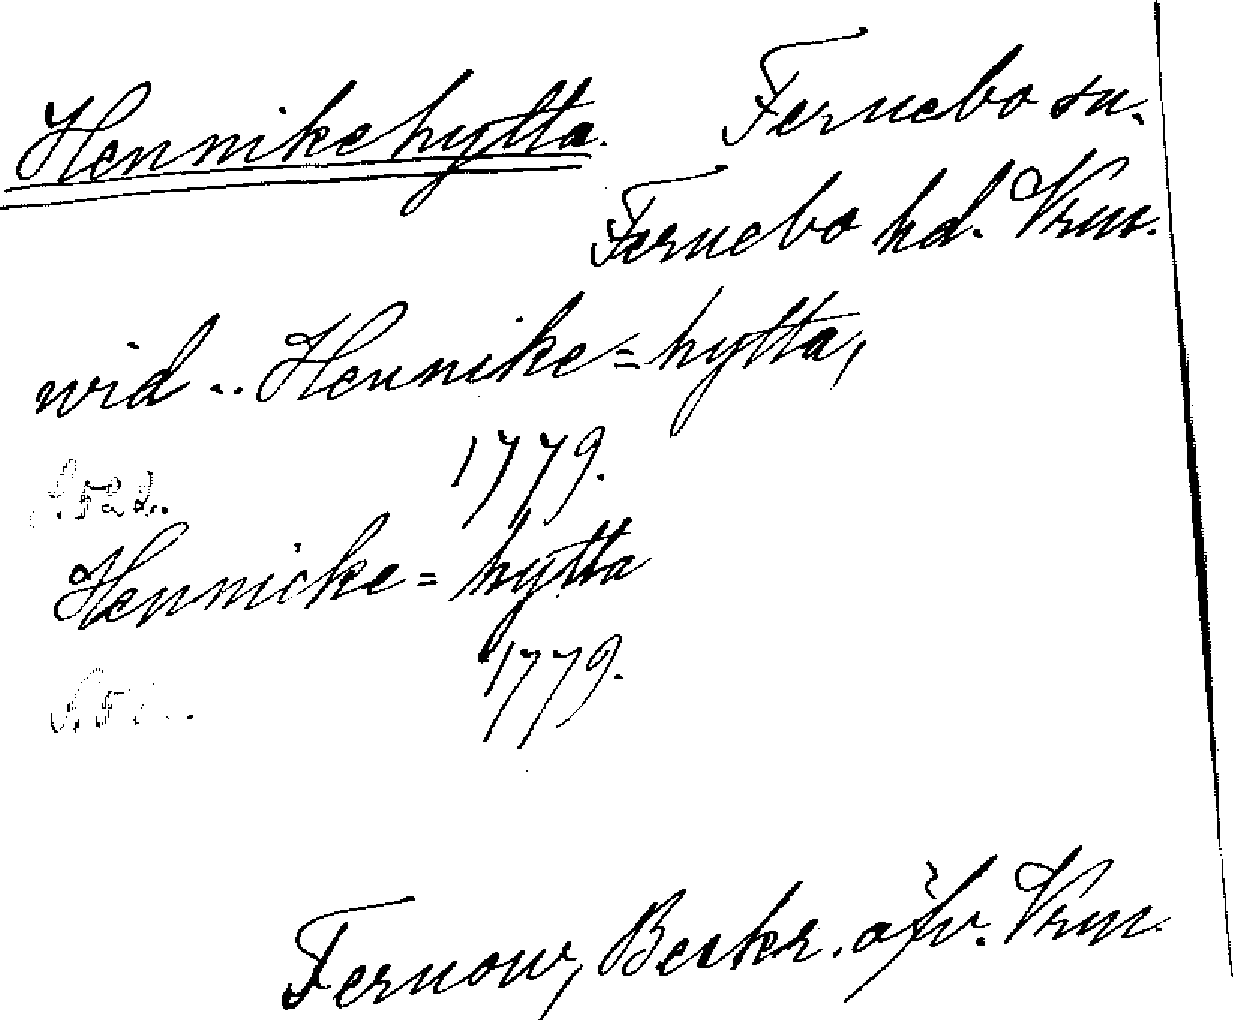 Hennikehytta. Fernebo sn.
Fernebo hd. Vrm.
wid .. Hennike=hytta,
1779.
Hennicke=hytta
1779.
Fernow, Beskr. öfv. Vrm.